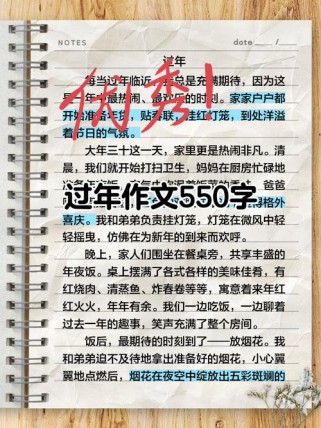 NOTES
date
/
过年
每当过年临近，总是充满期待，因为这
是一年中最热闹、最欢乐的时刻。家家户户都
开始准备年货，贴春联，挂红灯笼，到处洋溢
着节日的气氛。
优秀!
大年三十这一天，家里更是热闹非凡。清
晨，我们就开始打扫卫生，妈妈在厨房忙碌地
爸爸
过年作文550字
得格外
喜庆。我和弟弟负责挂灯笼，灯笼在微风中轻
轻摇曳，仿佛在为新年的到来而欢呼。
晚上，家人们围坐在餐桌旁，共享丰盛的
年夜饭。桌上摆满了各式各样的美味佳肴，有
红烧肉、清蒸鱼、炸春卷等等，寓意着来年红
红火火，年年有余。我们一边吃饭，一边聊着
过去一年的趣事，笑声充满了整个房间。
饭后，最期待的时刻到了——放烟花。我
和弟弟迫不及待地拿出准备好的烟花，小心翼
翼地点燃后，烟花在夜空中绽放出五彩斑斓的